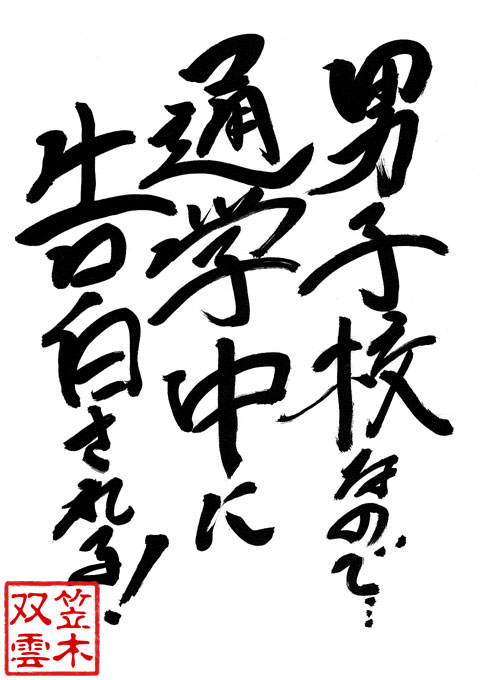 男子校なので…
通学中に
告白される!
笠木
双雲